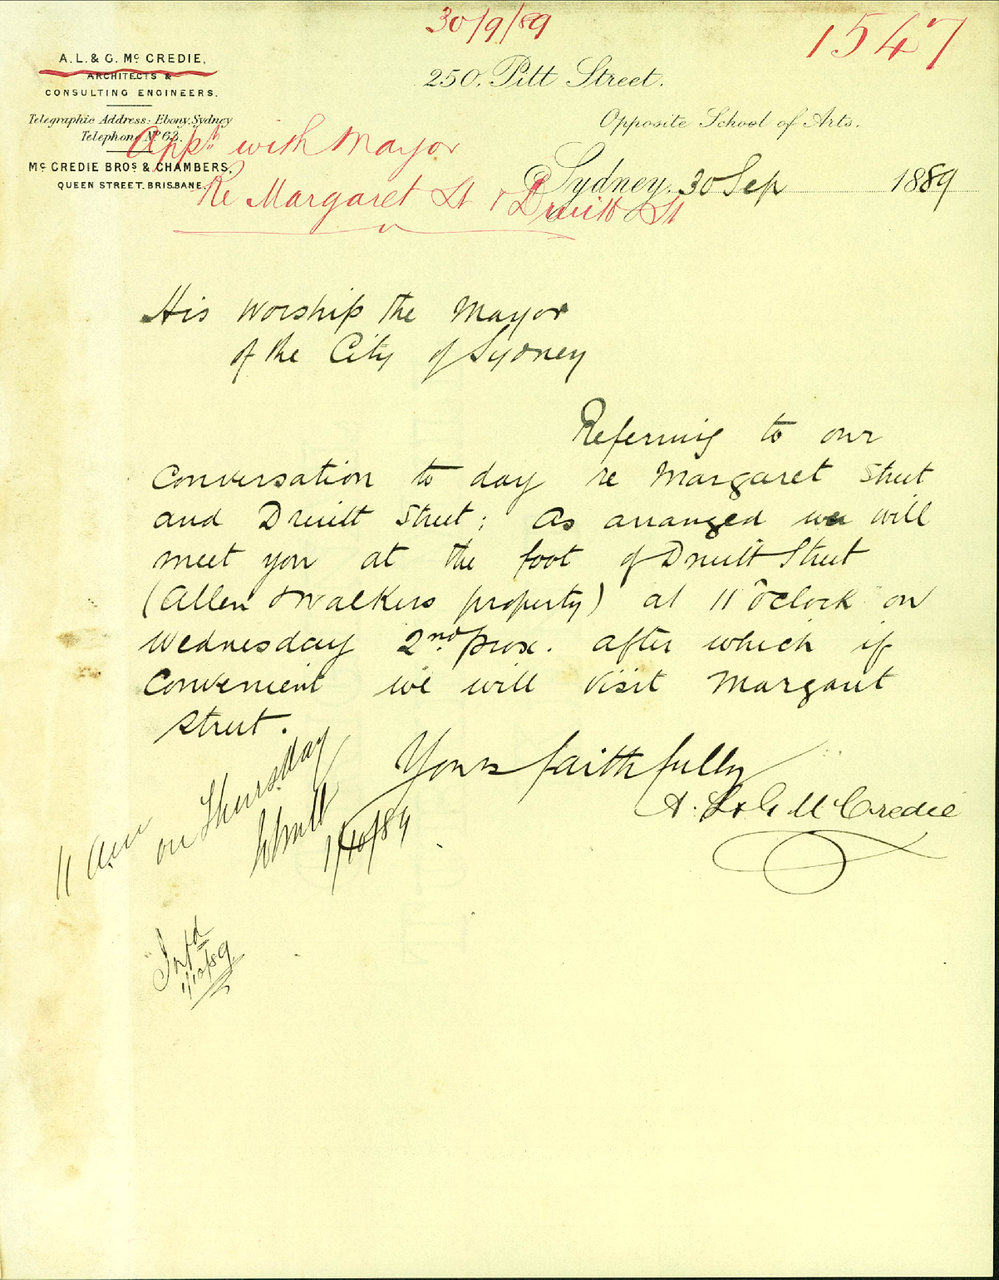 30/9/89
1547
A. L. & G. Mc CREDIE,
ARCHITECTS &
CONSULTING ENGINEERS.
Telegraphic Address: Ebony, Sydney
Telephone No 63.
Mc CREDIE BROS & CHAMBERS,
QUEEN STREET, BRISBANE.
250, Pitt Street.
Opposite School of Arts.
Sydney, 30 Sep 1889
Appt with Mayor
Re Margaret St & Druitt St
His Worship the Mayor
of the City of Sydney
Referring to our
Conversation to day re Margaret Street
and Druitt Street; As arranged we will
meet you at the foot of Druitt Street
(Allen & Walkers property) at 11 o'clock on
Wednesday 2nd prox. after which if
Convenient we will visit Margaret
Street.
Yours faithfully
A. L & G McCredie
11 am
on Thursday
1/10/89
Intd
1/10/89